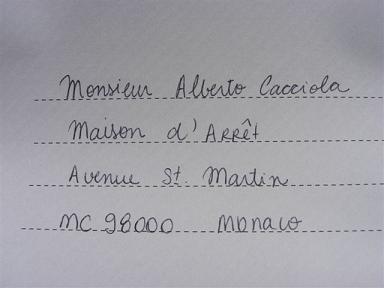 Monsieur Alberto Cacciola
Maison d'Arrêt
Avenue St. Martin
MC 98000 Monaco